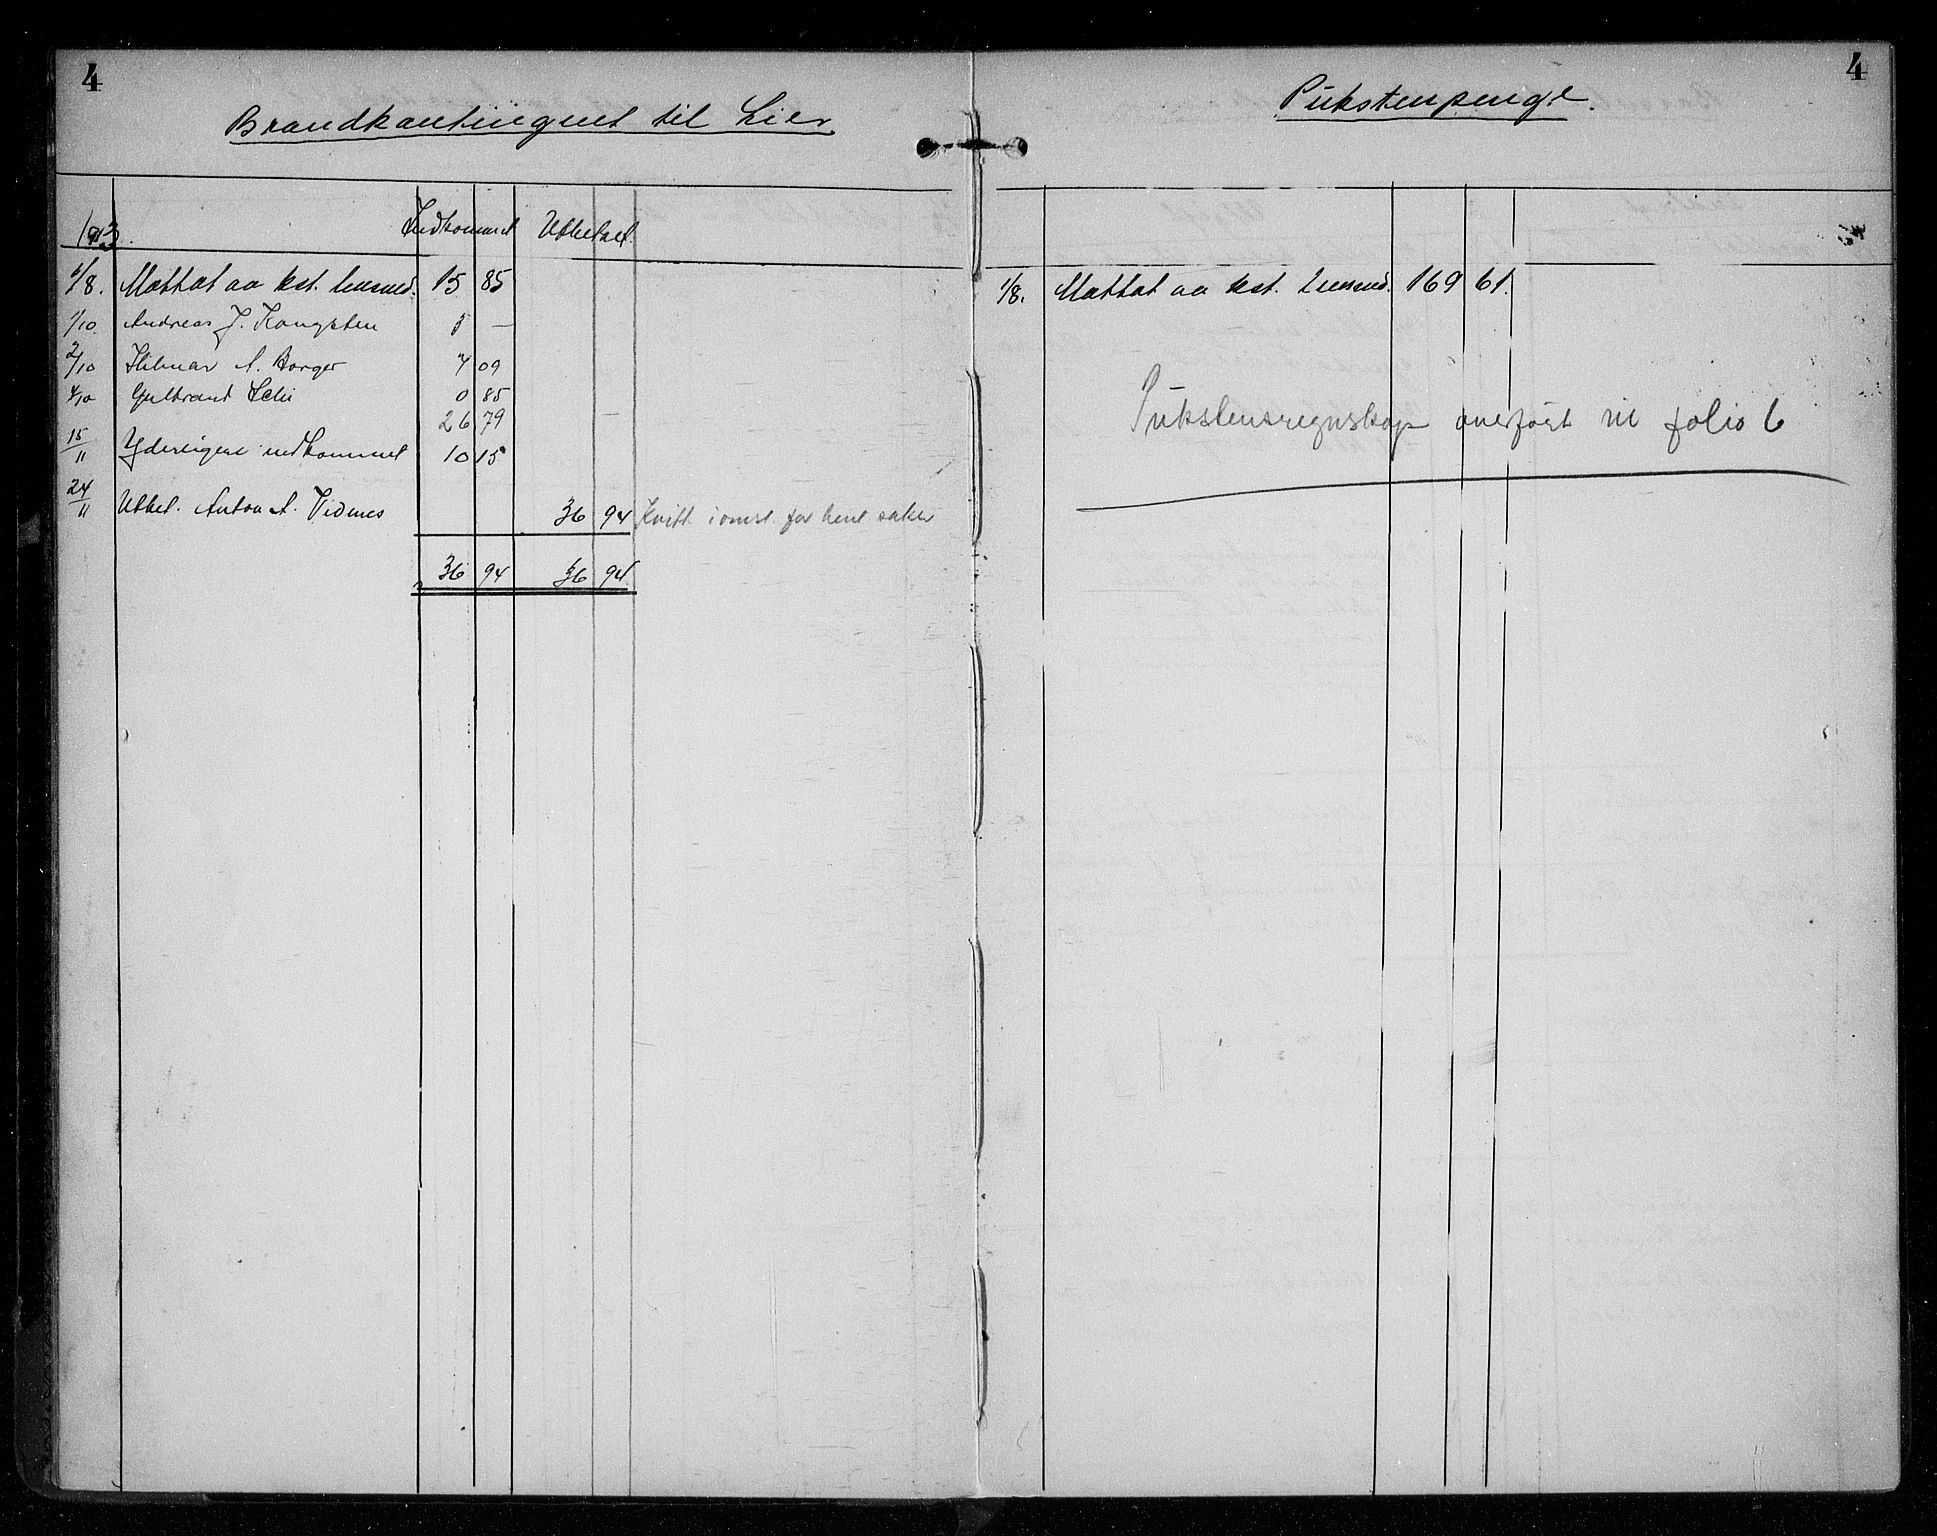 4
Brandkontingnet til Lier
1913. Indkommet Utbetalt.
1/8. Mottat av kst. lensmd. 15 85
1/10. Andreas J. Kongsten 5 —
2/10 Hilmar A. Borger 4 09
4/10 Gulbrand 0 85
26 79
15/11 Yderligere indkommet 10 15
24/11 Utbet. Anton A. Vidnes 36 94 Kvitt. i omsl. for bent. saker
36 94 36 94
4
Pukstenpenge.
1/8. Mottat av kst. Lensmd. 169 61.
Pukstensregnskap overført til folio 6